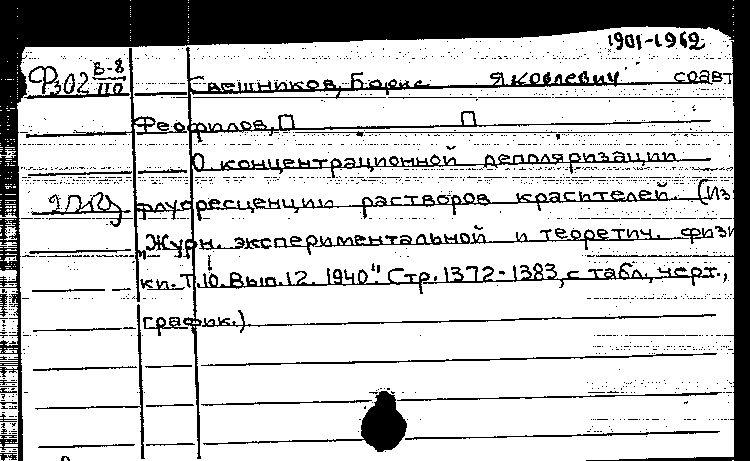 1901-1962
Ф302 В-8/110 Свешников, Борис Яковлевич соавт
Феофилов, П П
О концентрационной деполяризации
флуоресценции растворов красителей. (Из
"Журн. экспериментальной и теоретич. физи
ки. Т.10. Вып.12. 1940". Стр. 1372-1383, с табл., черт.,
график.)